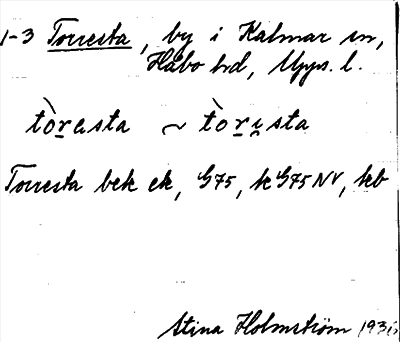 1-3 Torresta, by i Kalmar sn,
Håbo hd, Upps. l.
tòrasta ~ tòrısta
Torresta bek ek, G75, k G75 NV, kb
Stina Holmström 1936